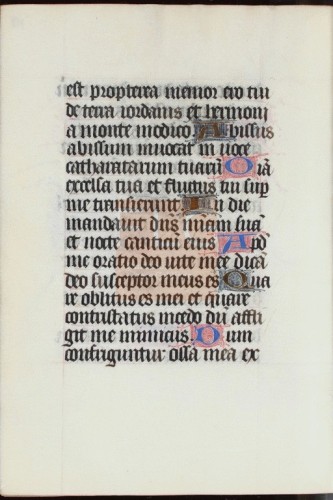 est propterea memor ero tui
de terra iordanis et hermoni
a monte modico Abissus
abissum inuocat in uoce
catharatarum tuarū Oīa
excelsa tua et fluctus tui sup
me transierunt In die
mandauit dn̄s miam̄ suā
et nocte canticū eius Apd
me oratio deo uite mee dicā
deo susceptor meus es Qua
re oblitus es mei et quare
contristatus incedo dū affli
git me inimicus Dum
confriguntur ossa mea ex